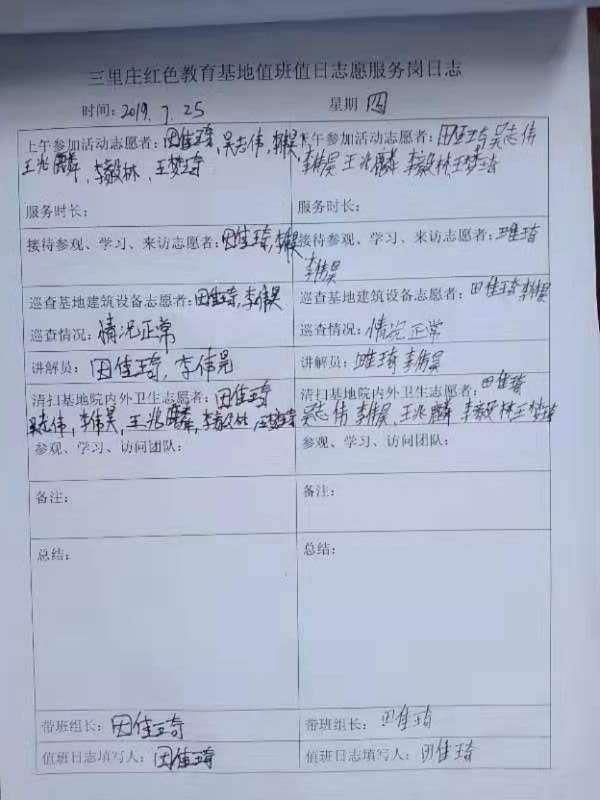 三里庄红色教育基地值班值日志愿服务岗日志
时间：2019.7.25 星期 四
上午参加活动志愿者：田佳琦，吴志伟，李伟昊
王兆麟，李毅林，王梦琦
服务时长：
接待参观、学习、来访志愿者：田佳琦，李伟昊
巡查基地建筑设备志愿者：田佳琦，李伟昊
巡查情况：情况正常
讲解员：田佳琦，李伟昊
清扫基地院内外卫生志愿者：田佳琦
吴志伟，李伟昊，王兆麟，李毅林，王梦琦
参观、学习、访问团队：
备注：
总结：
带班组长：田佳琦
值班日志填写人：田佳琦
下午参加活动志愿者：田佳琦 吴志伟
李伟昊 王兆麟 李毅林 王梦琦
服务时长：
接待参观、学习、来访志愿者：田佳琦
李伟昊
巡查基地建筑设备志愿者：田佳琦 李伟昊
巡查情况：情况正常
讲解员：田佳琦 李伟昊
清扫基地院内外卫生志愿者：田佳琦
吴志伟 李伟昊，王兆麟 李毅林 王梦琦
参观、学习、访问团队：
备注：
总结：
带班组长：田佳琦
值班日志填写人：田佳琦